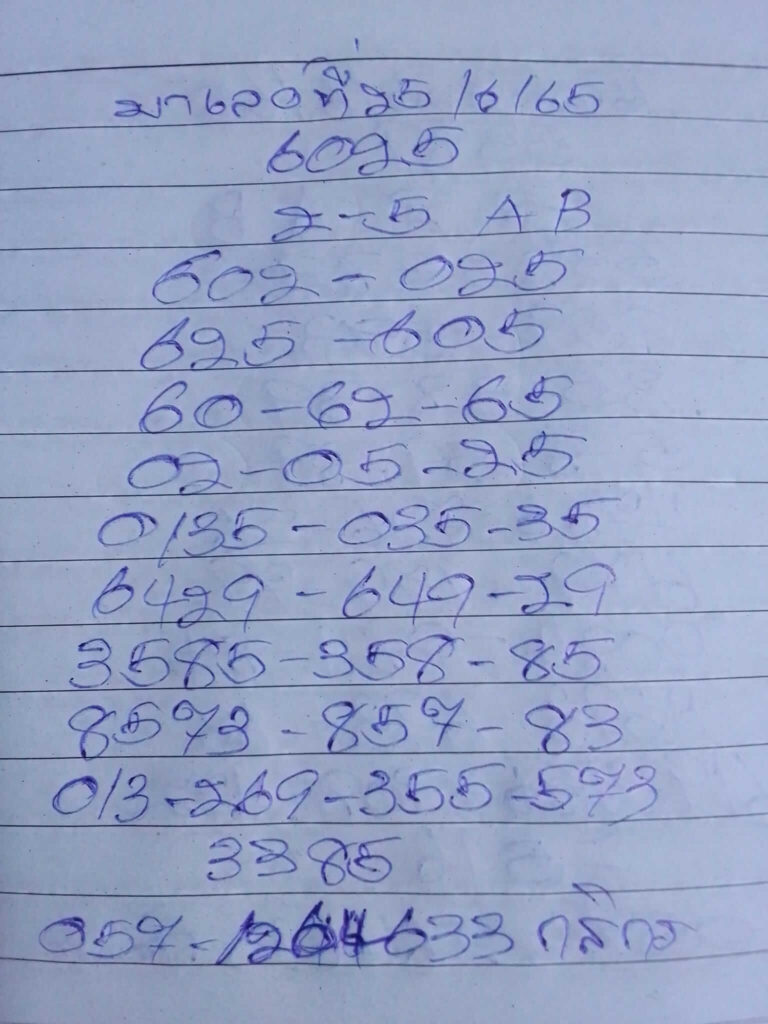 มาเลย์ที่ 25/6/65
6025
2-5 A B
602 - 025
625 - 605
60 - 62 - 65
02 - 05 - 25
0135 - 035 - 35
6429 - 649 - 29
3585 - 358 - 85
8573 - 857 - 83
013 - 269 - 355 - 573
3385
057 - 633